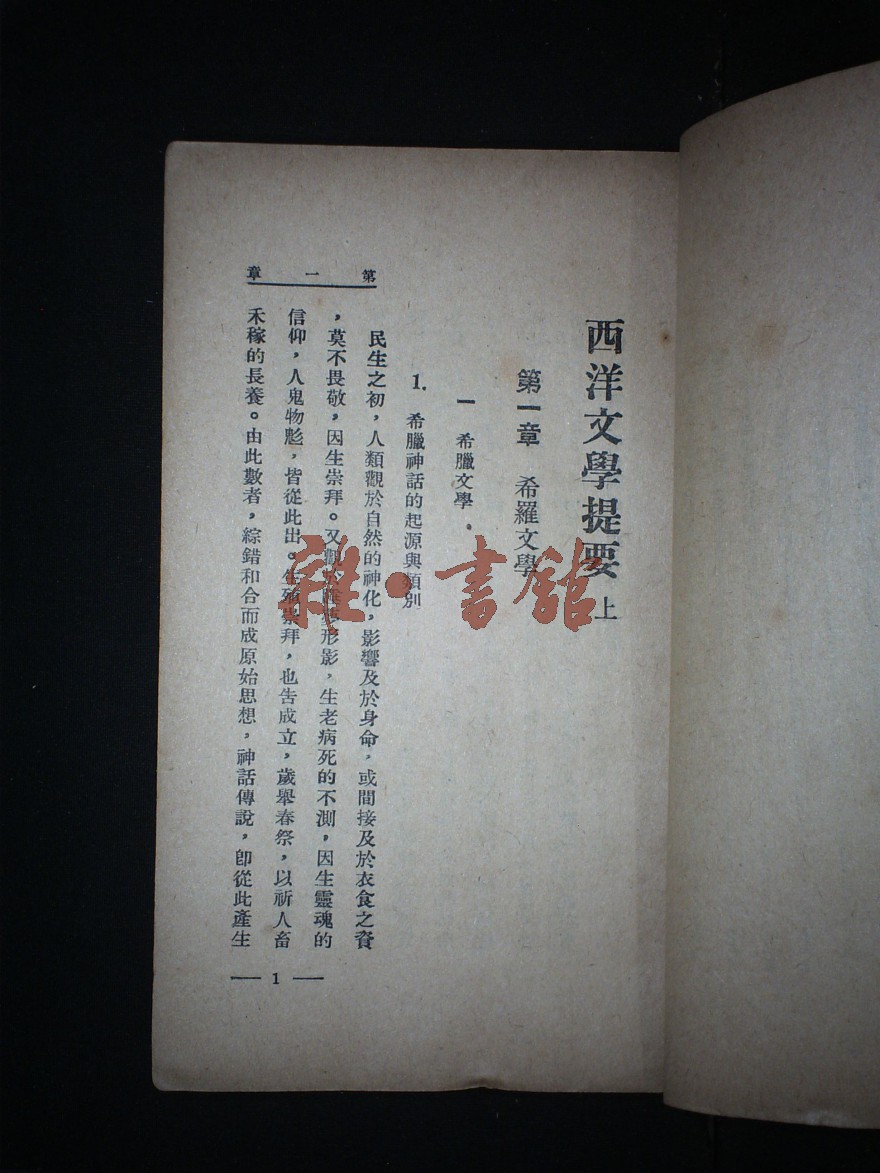 西洋文學提要 上
第一章 希羅文學
一 希臘文學
1. 希臘神話的起源與類別
民生之初，人類觀於自然的神化，影響及於身命，或間接及於衣食之資
，莫不畏敬，因生崇拜。又觀於形影，生老病死的不測，因生靈魂的
信仰，人鬼物魅，皆從此出。生殖崇拜，也吿成立，歲舉春祭，以祈人畜
禾稼的長養。由此數者，綜錯和合而成原始思想，神話傳說，卽從此產生
第一章
1
雜·書館